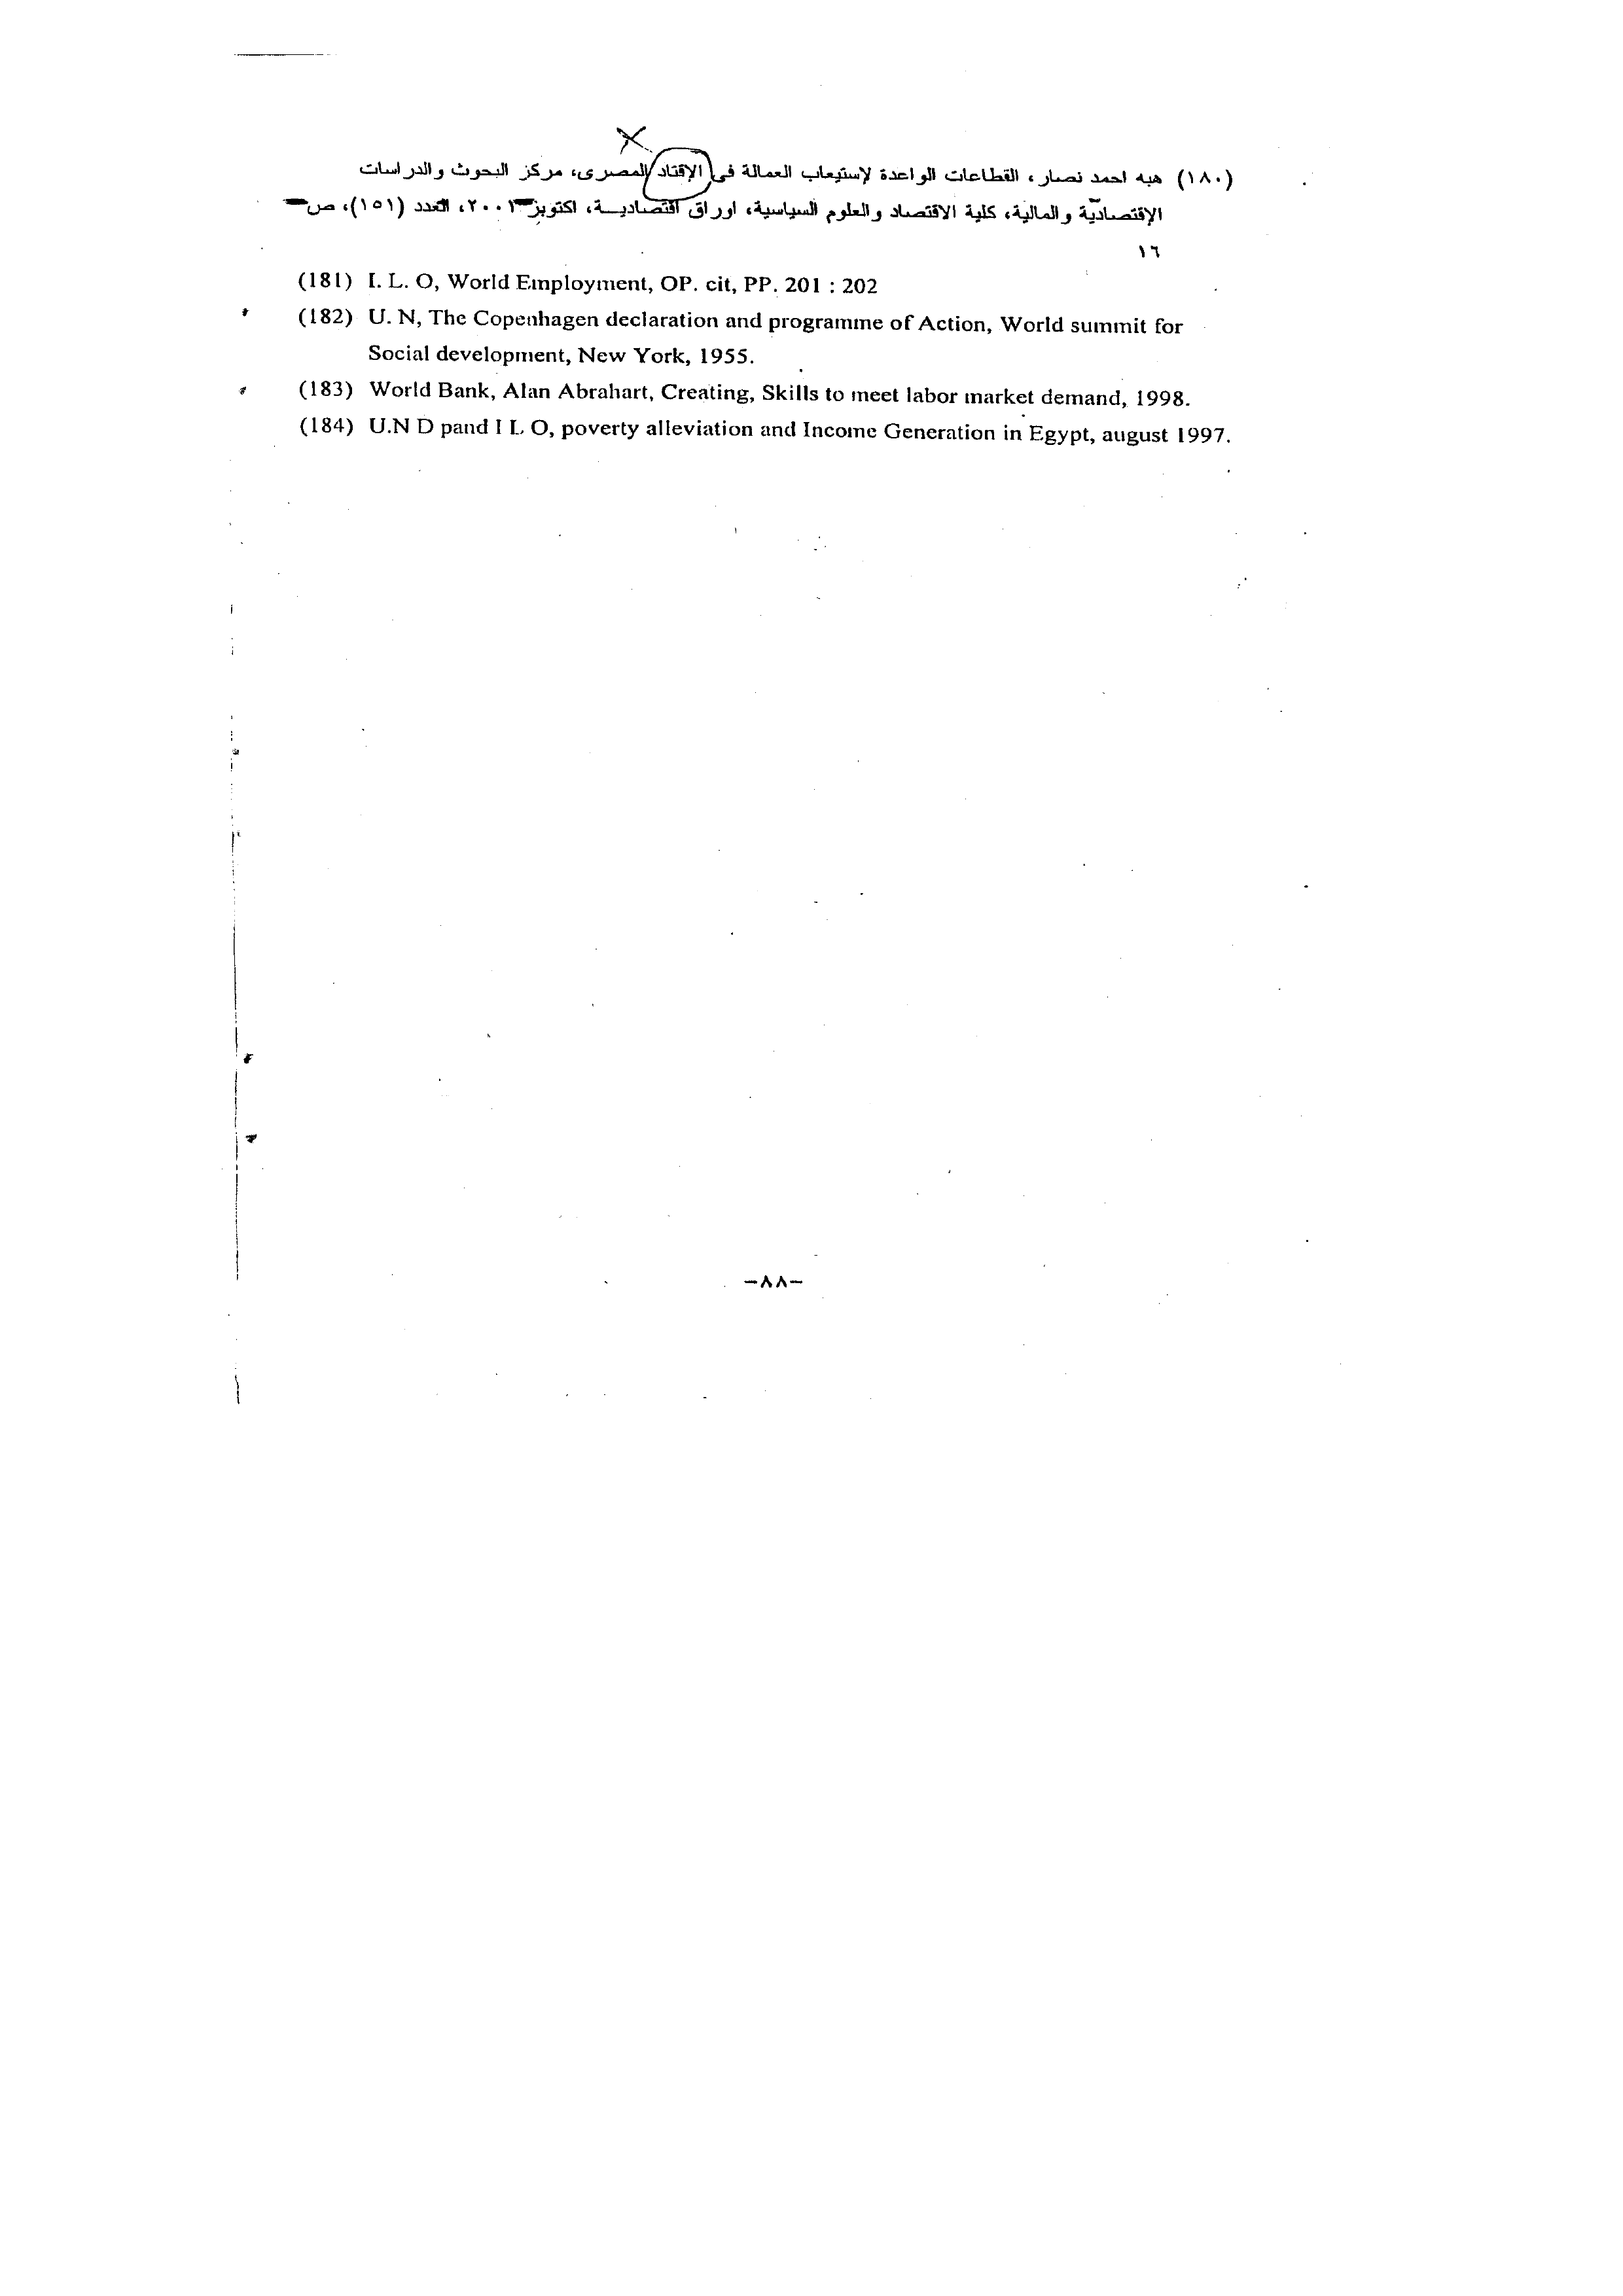 (١٨٠) هبه احمد نصار ، القطاعات الواعدة لإستيعاب العمالة فى الإقتاد المصرى، مركز البحوث والدراسات
الإقتصادية والمالية، كلية الاقتصاد والعلوم السياسية، اوراق اقتصاديـة، اكتوبر ٢٠٠١، العدد (١٥١)، ص
١٦
(181) I. L. O, World Employment, OP. cit, PP. 201 : 202
(182) U. N, The Copenhagen declaration and programme of Action, World summit for
Social development, New York, 1955.
(183) World Bank, Alan Abrahart, Creating, Skills to meet labor market demand, 1998.
(184) U.N D pand I L O, poverty alleviation and Income Generation in Egypt, august 1997.
-٨٨-